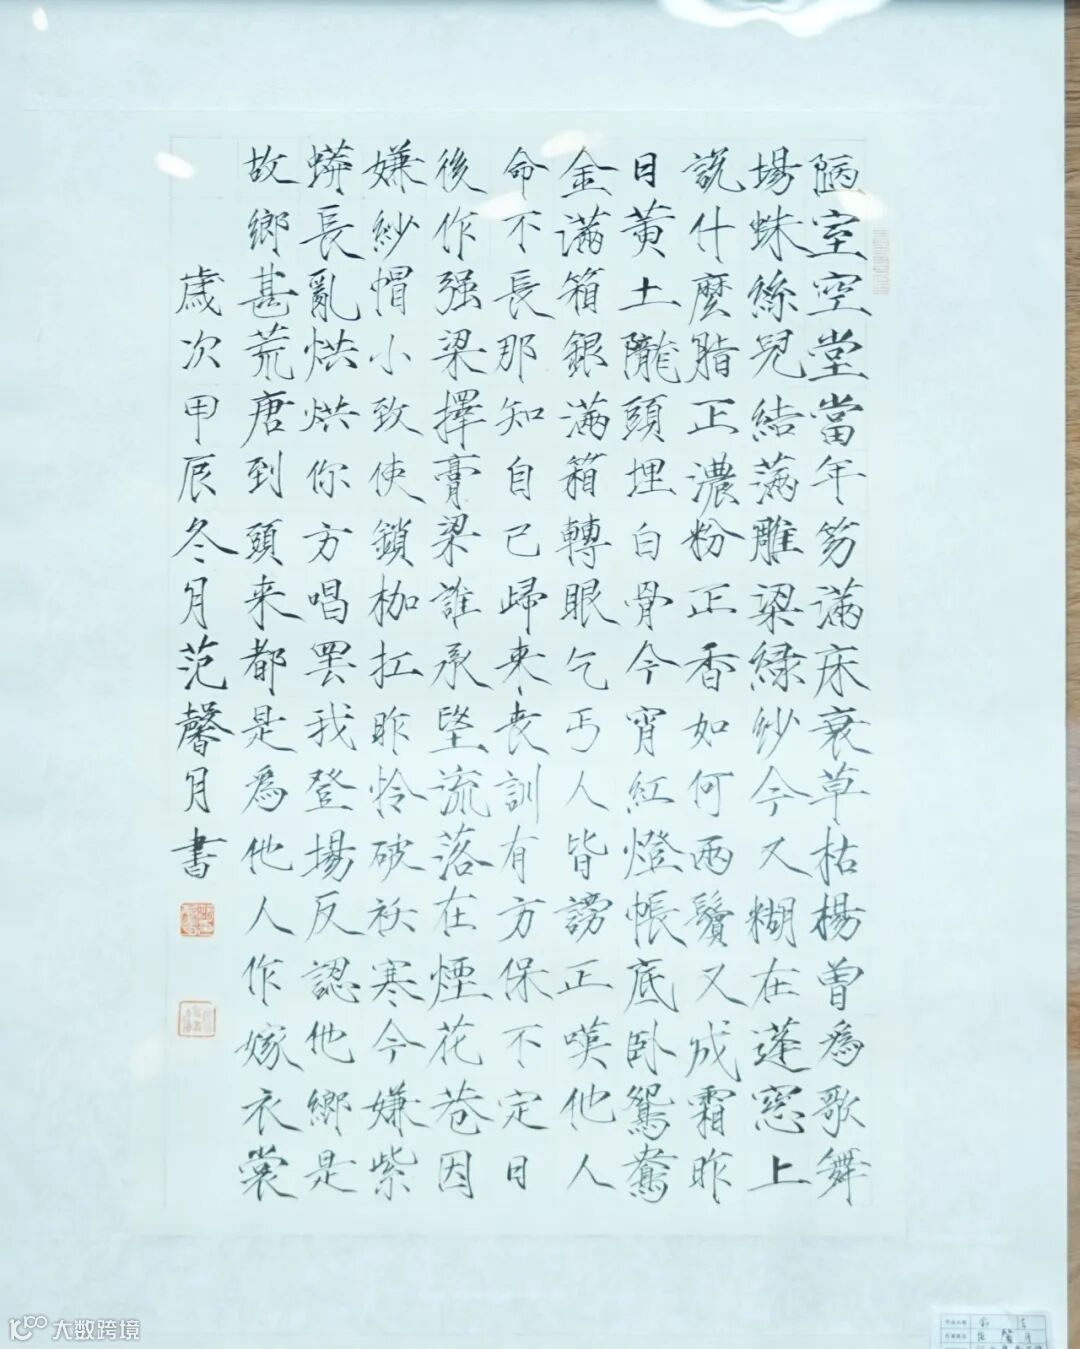 陋室空堂當年笏滿床衰草枯楊曾爲歌舞
場蛛絲兒結滿雕梁綠紗今又糊在蓬窓上
説什麼脂正濃粉正香如何兩鬢又成霜昨
日黃土隴頭埋白骨今宵紅燈帳底卧鴛鴦
金滿箱銀滿箱轉眼乞丐人皆謗正嘆他人
命不長那知自己歸来丧訓有方保不定日
後作强梁擇膏梁誰承望流落在煙花巷因
嫌紗帽小致使鎖枷扛昨怜破袄寒今嫌紫
蟒長亂烘烘你方唱罢我登場反認他鄉是
故鄉甚荒唐到頭来都是爲他人作嫁衣裳
歲次甲辰冬月范馨月書
大数跨境